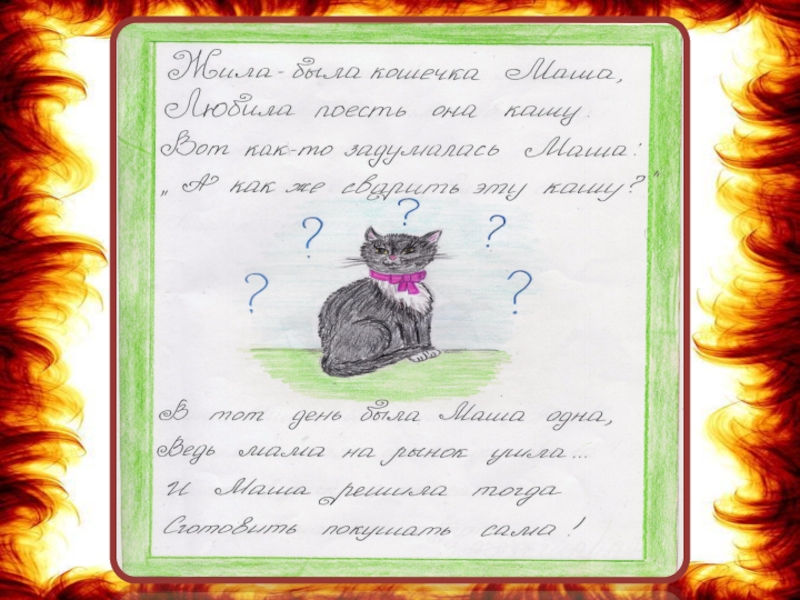 Жила-была кошечка Маша,
Любила поесть она кашу.
Вот как-то задумалась Маша:
„А как же сварить эту кашу?"
? ? ? ? ?
В тот день была Маша одна,
Ведь мама на рынок ушла...
И Маша решила тогда
Сготовить покушать сама!